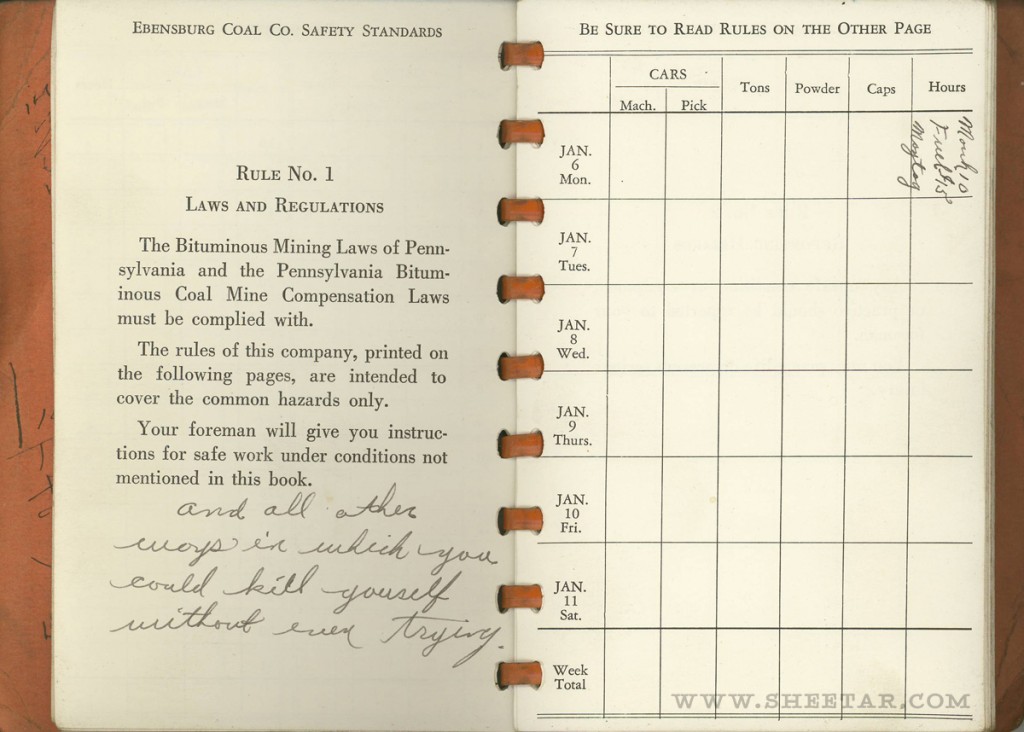 EBENSBURG COAL CO. SAFETY STANDARDS
RULE NO. 1
LAWS AND REGULATIONS
The Bituminous Mining Laws of Penn-
sylvania and the Pennsylvania Bitum-
inous Coal Mine Compensation Laws
must be complied with.
The rules of this company, printed on
the following pages, are intended to
cover the common hazards only.
Your foreman will give you instruc-
tions for safe work under conditions not
mentioned in this book.
and all other
ways in which you
could kill yourself
without even trying.
BE SURE TO READ RULES ON THE OTHER PAGE
CARS
Tons Powder Caps Hours
Mach. Pick
JAN.
6
Mon.
JAN.
7
Tues.
JAN.
8
Wed.
JAN.
9
Thurs.
JAN.
10
Fri.
JAN.
11
Sat.
Week
Total
Maytag
WWW.SHEETAR.COM